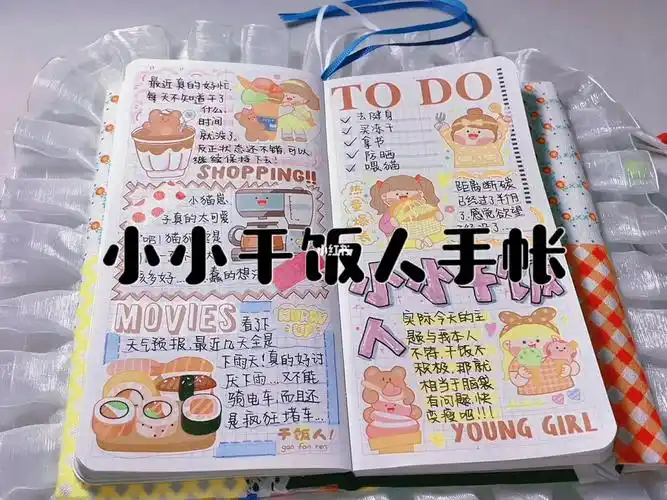 最近真的好忙,
每天不知道干了
什么,
时间
就没了,
反正状态还不错,可以
继续保持下去!
SHOPPING!!
小猫崽
子真的太可爱
吧!猫猫
该多好......蠢的想
MOVIES
HAPPY
看了下
天气预报,最近几天全是
下雨天!真的好讨
厌下雨...又不能
骑电车,而且还
是疯狂堵车...
干饭人!
gan fan ren
TO DO
✓ 去健身
✓ 买冻干
✓ 拿书
✓ 防晒
✓ 喂猫
距离断碳
已经过了半月
了,感觉欲望
小小干饭人手帐
小红书
小小干饭
人
实际今天的主
题与我本人
不符,干饭不
积极,那就
相当于脑袋
有问题,快
变瘦吧!!!
YOUNG GIRL